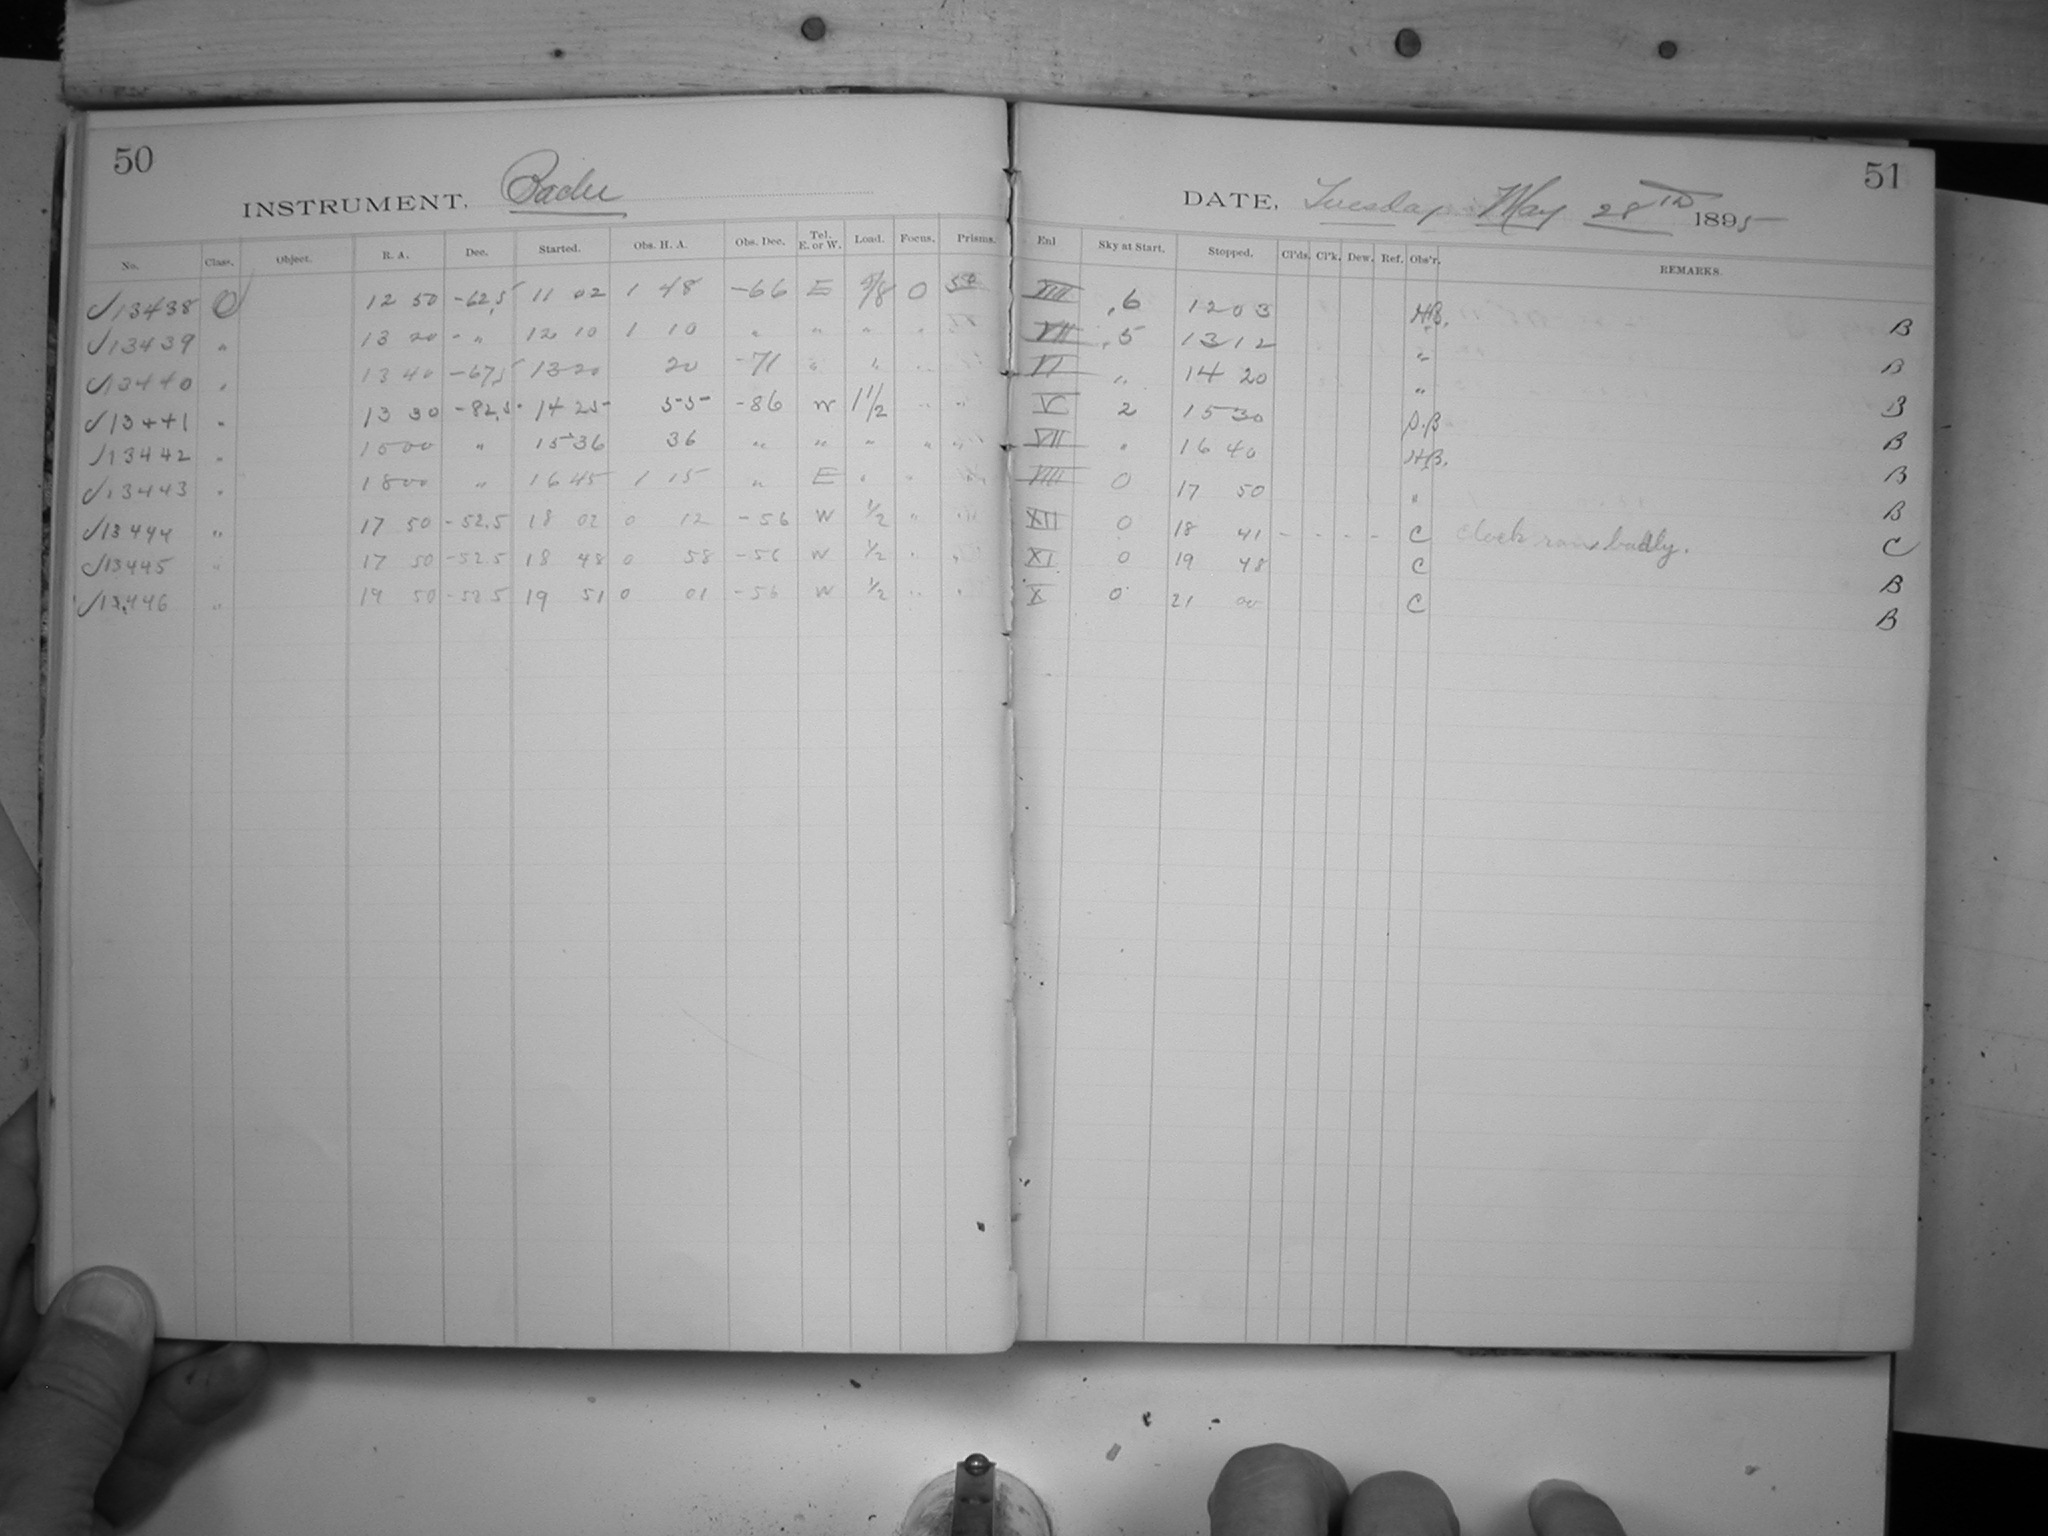 50
INSTRUMENT. Bache
No. Class. Object. R. A. Dec. Started. Obs. H. A. Obs. Dec. Tel. E. or W. Load. Focus. Prisms.
√13438 O 12 50 -62.5 11 02 1 48 -66 E 5/8 0
√13439 " 13 20 - " 12 10 1 10 " " " "
√13440 " 13 40 -67.5 13 20 20 -71 " " "
√13441 " 13 30 -82.5 14 25 55 -86 W 1 1/2 " "
√13442 " 1500 " 15 36 36 " " " " "
√13443 " 1800 " 16 45 1 15 " E " "
√13444 " 17 50 -52.5 18 02 0 12 -56 W 1/2 " "
√13445 " 17 50 -52.5 18 48 0 58 -56 W 1/2 " "
√13446 " 19 50 -52.5 19 51 0 01 -56 W 1/2 " "
51
DATE. Tuesday May 28TH 1895
Enl Sky at Start. Stopped. Cl'ds. Cl'k. Dew. Ref. Obs'r. REMARKS.
XIII .6 12 03 H.B. B
VII .5 13 12 " B
VI " 14 20 " B
V 2 15 30 S.B B
VII " 16 40 H.B. B
VIII 0 17 50 " B
XII 0 18 41 - - - - C clock ran badly. C
XI 0 19 48 C B
X 0 21 00 C B